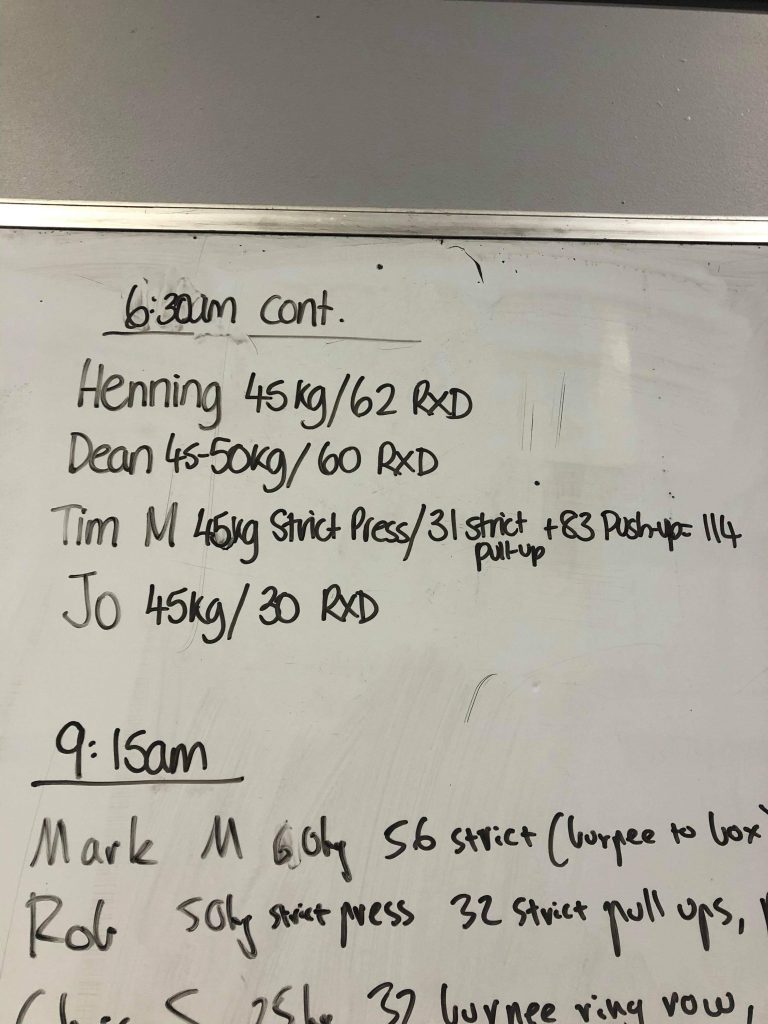 6:30am cont.
Henning 45kg/62 RXD
Dean 45-50kg/60 RXD
Tim M 45kg Strict Press/31 strict pull-up +83 Push-up= 114
Jo 45kg/30 RXD
9:15am
Mark M 60kg 56 strict (burpee to box
Rob 50kg strict press 32 strict pull ups,
S 25kg 32 burpee ring row,